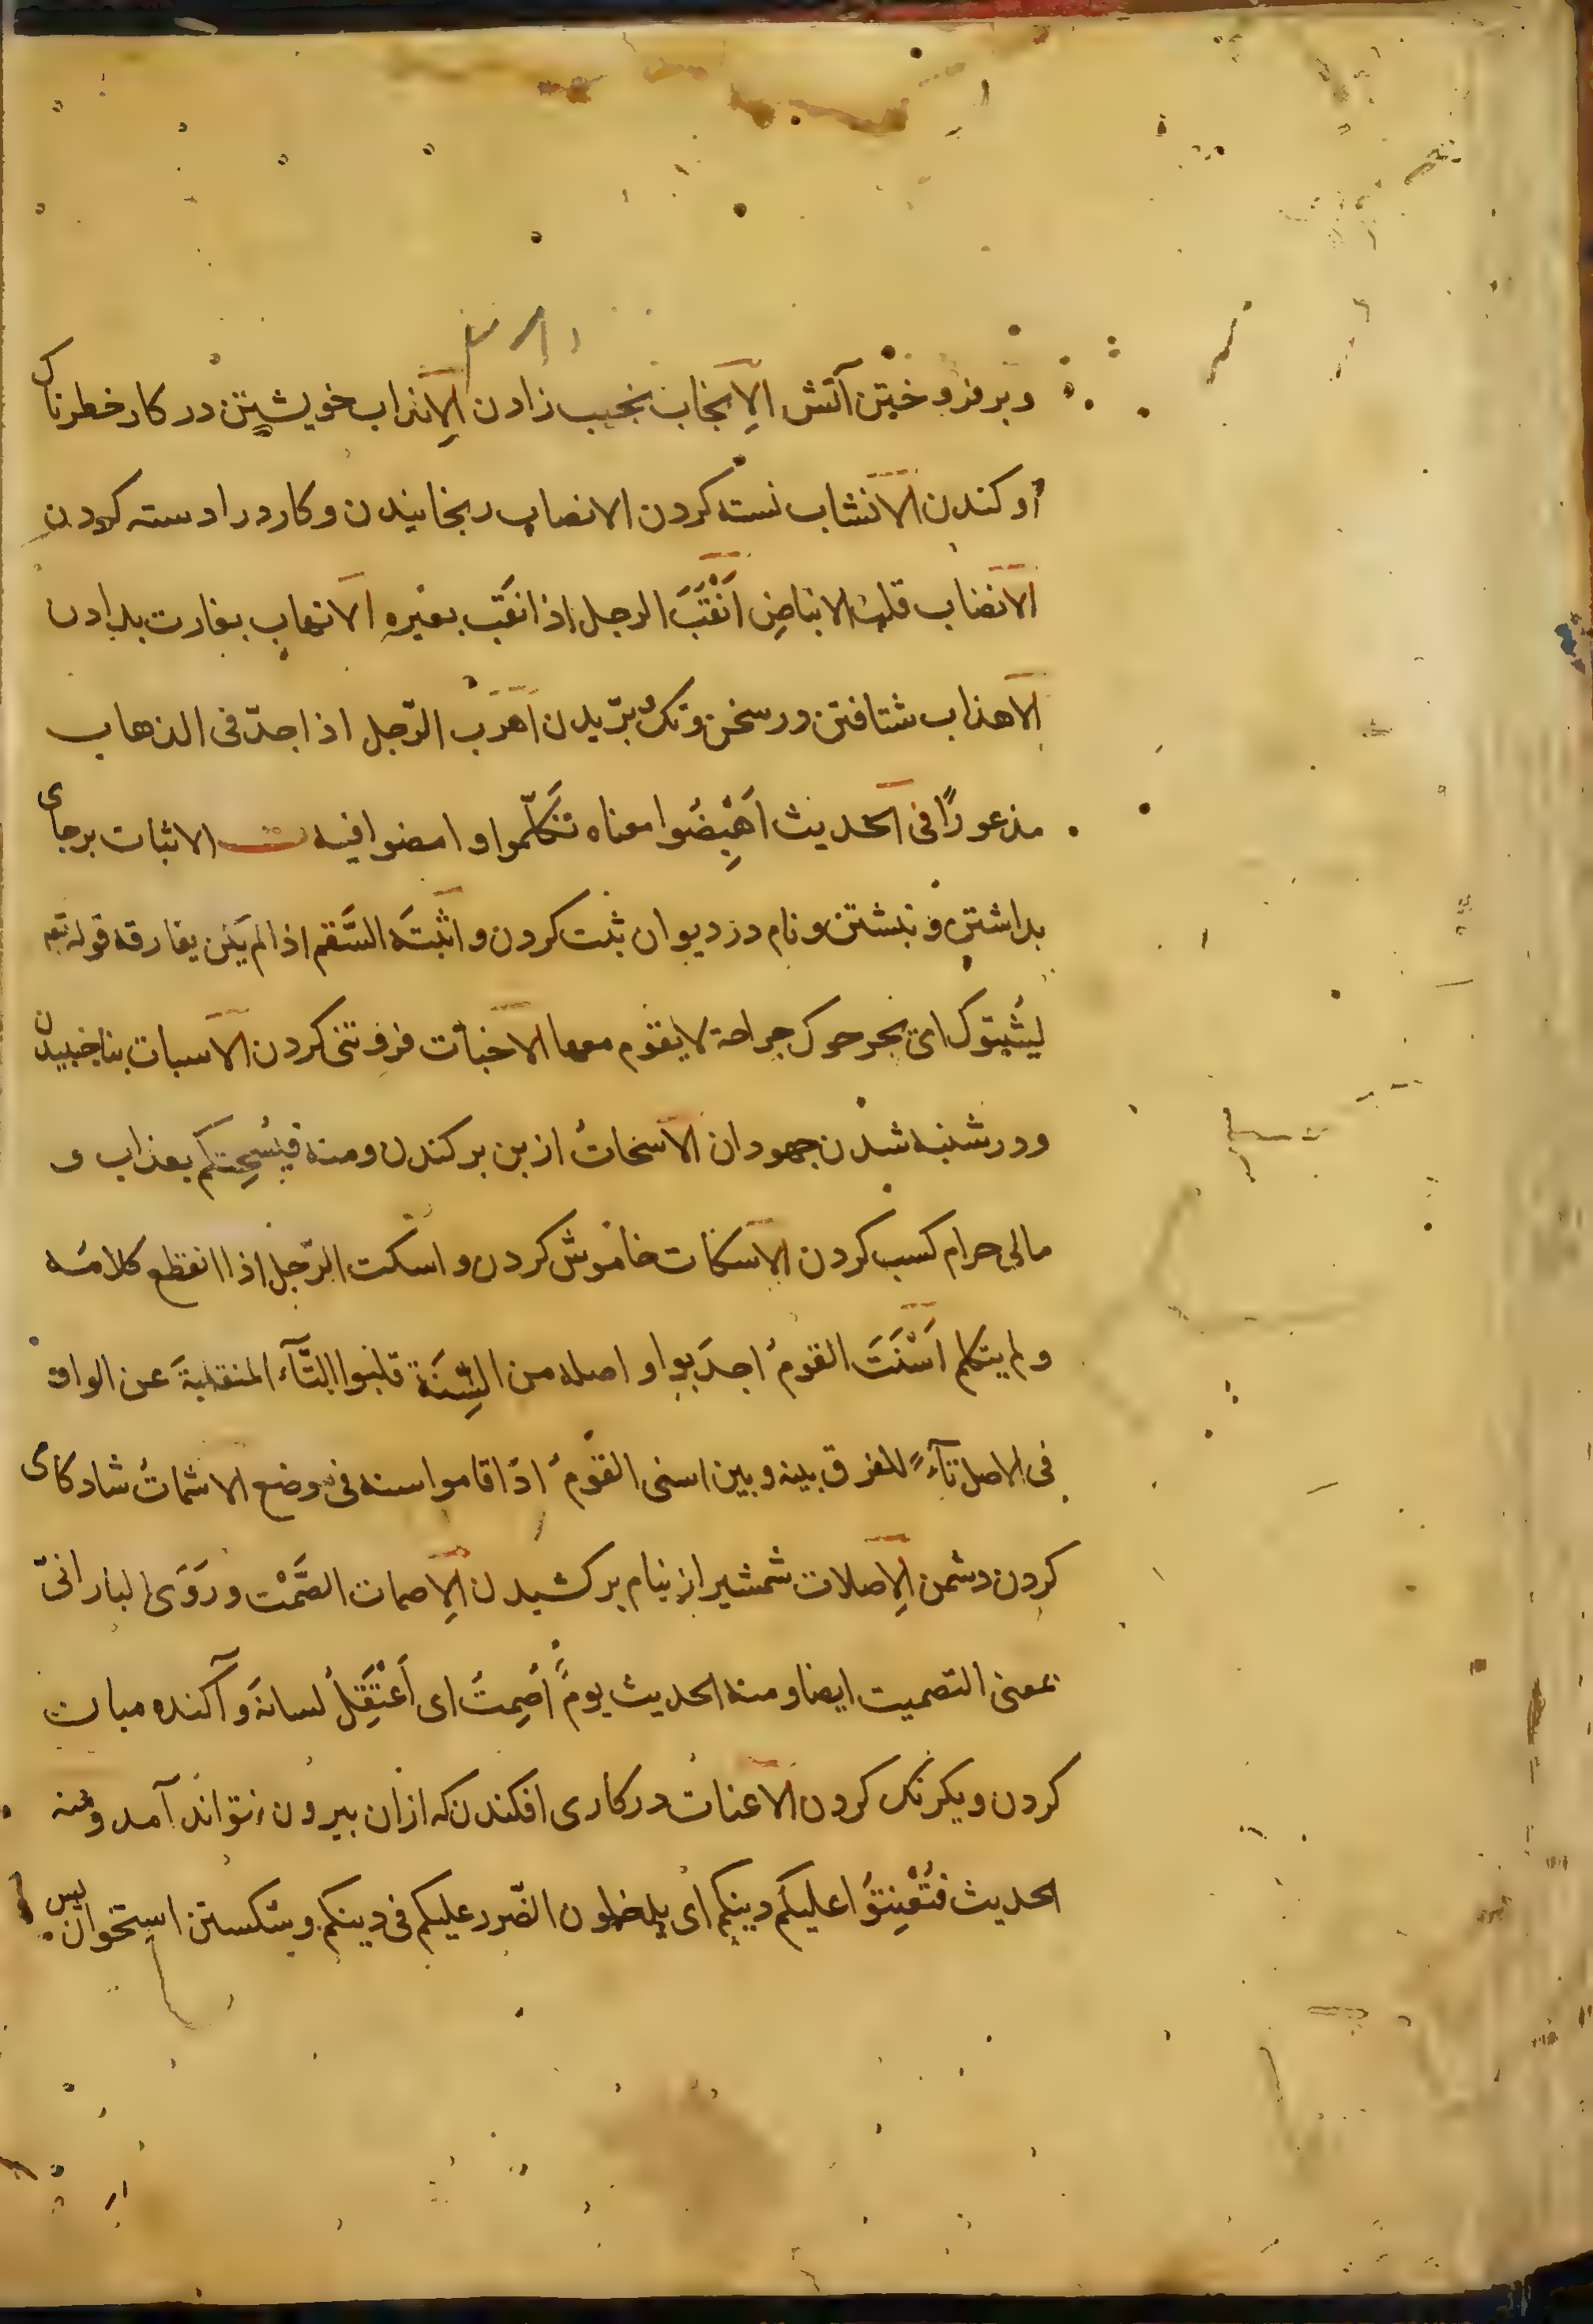 وبرفروختن آتش الاِنجاب نجیب زادن الاِنداب خویشتن در کار خطرناک
اوکندن الانشاب نسته کردن الانصاب رنجانیدن و کارد را دسته کردن
الانضاب قلب الانباض اَنْقَبَ الرجل اذا نقب بعیره الانهاب بغارت بدادن
الاهذاب شتافتن ودر سخن وتک بریدن اهرب الرّجل اذا جدّ فی الذهاب
مذعورًا فی الحدیث اَهْضِبُوا معناه تکلّموا وامضوا فیه ت الاثبات برجای
بداشتن و نبشتن و نام در دیوان ثبت کردن و اثبَتَه السَّقم اذا لم یکن یفارقه قوله تعه
لیُثبِتوک ای یجرحوک جراحة لا یقوم معها الاخبات فروتنی کردن الاسبات بناجنبیدن
ودر شنبه شدن جهودان الاسحاتُ از بن برکندن ومنه فیُسحِتکم بعذاب و
مالی حرام کسب کردن الاسکات خاموش کردن و اسکت الرّجل اذا انقطع کلامُه
ولم یتکلم اَسْنَتَ القومُ اجدَبوا و اصله من السَّنَة قلبوا التَّآء المنقلبةَ عن الواو
فی الاصل تآءً للفرق بینه وبین اسنی القومُ اذا قاموا سنة فی موضع الاشماتُ شادکامی
کردن دشمن الاِصلات شمشیر از نیام برکشیدن الاِصمات الصَّمْت ورَوَی البارانیّ
بمعنی التصمیت ایضا ومنه الحدیث یومَ اُصْمِتَ ای اُعْتُقِلَ لسانه و آکنده میان
کردن و یکرنگ کردن الاعنات در کاری افکندن که ازان بیرون نتواند آمد ومنه
الحدیث فتُعْنِتُوا علیکم دینکم ای یدخلون الضّرر علیکم فی دینکم وشکستن استخوان پس